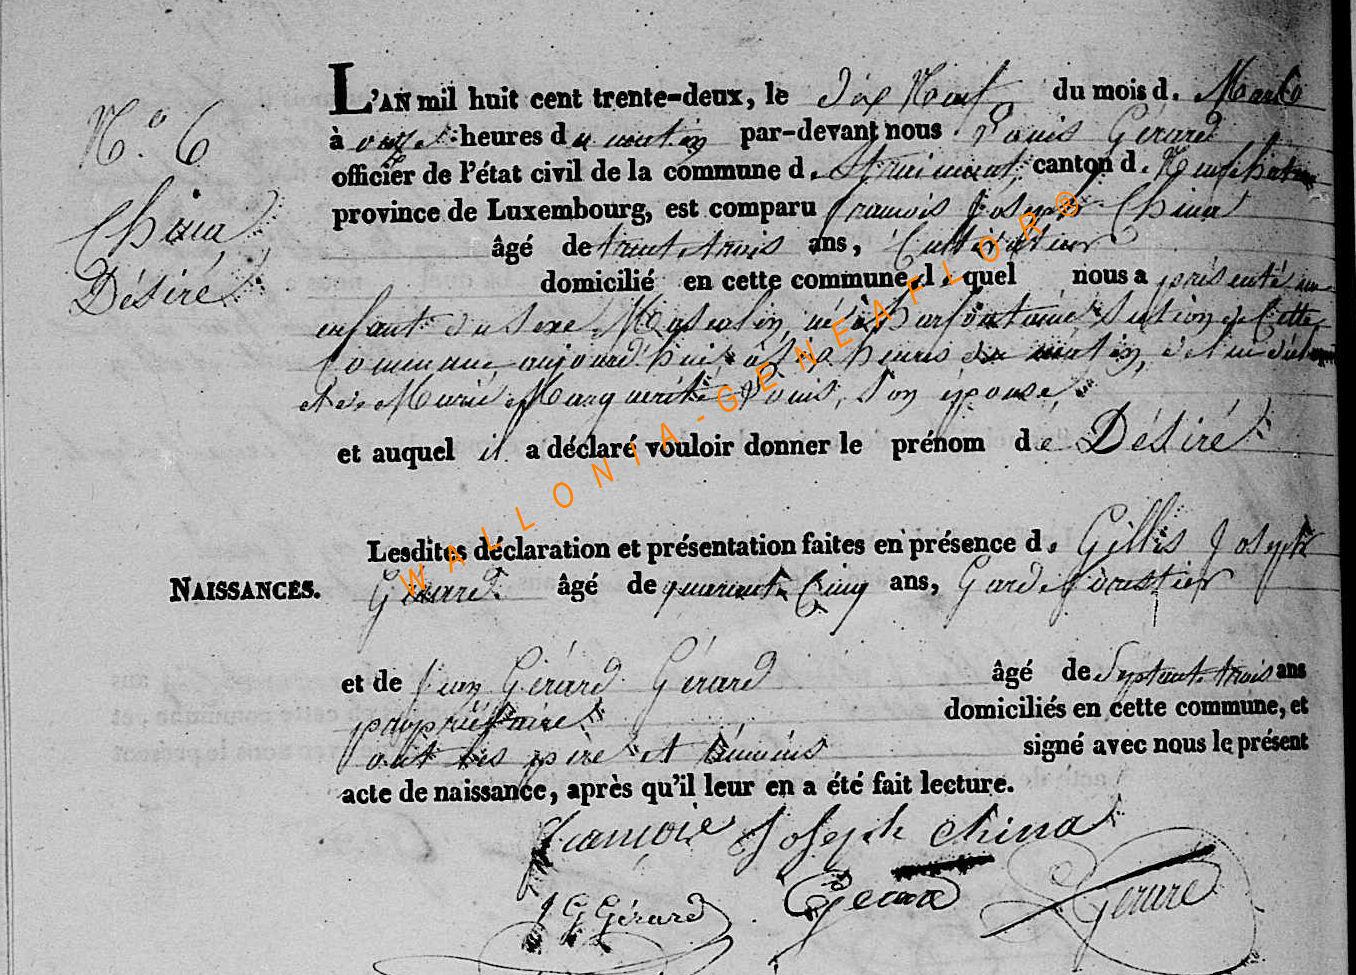 N.º 6
China
Désiré
L'AN mil huit cent trente-deux, le dix Neuf du mois d. Mars
à onze heures du matin par-devant nous Louis Gérard
officier de l'état civil de la commune d. Straimont, canton d. Neufchateau
province de Luxembourg, est comparu françois Joseph China
âgé de trente trois ans, Cultivateur
domicilié en cette commune, l. quel nous a présenté un
enfant du sexe Masculin, né à harfontaine section de Cette
Commune aujourd'hui à heures du matin, de lui déclarant
et de Marie Marguerite Louis, Son épouse,
et auquel il a déclaré vouloir donner le prénom de Désiré
Lesdites déclaration et présentation faites en présence d. Gilles Joseph
NAISSANCES. Gérard âgé de quarante Cinq ans, Garde forestier
et de jean Gérard Gérard âgé de Septante trois ans
propriétaire domiciliés en cette commune, et
ont les père et témoins signé avec nous le présent
acte de naissance, après qu'il leur en a été fait lecture.
françois Joseph China
J G Gérard Gerard Gerard
WALLONIA-GENEAFLOR®